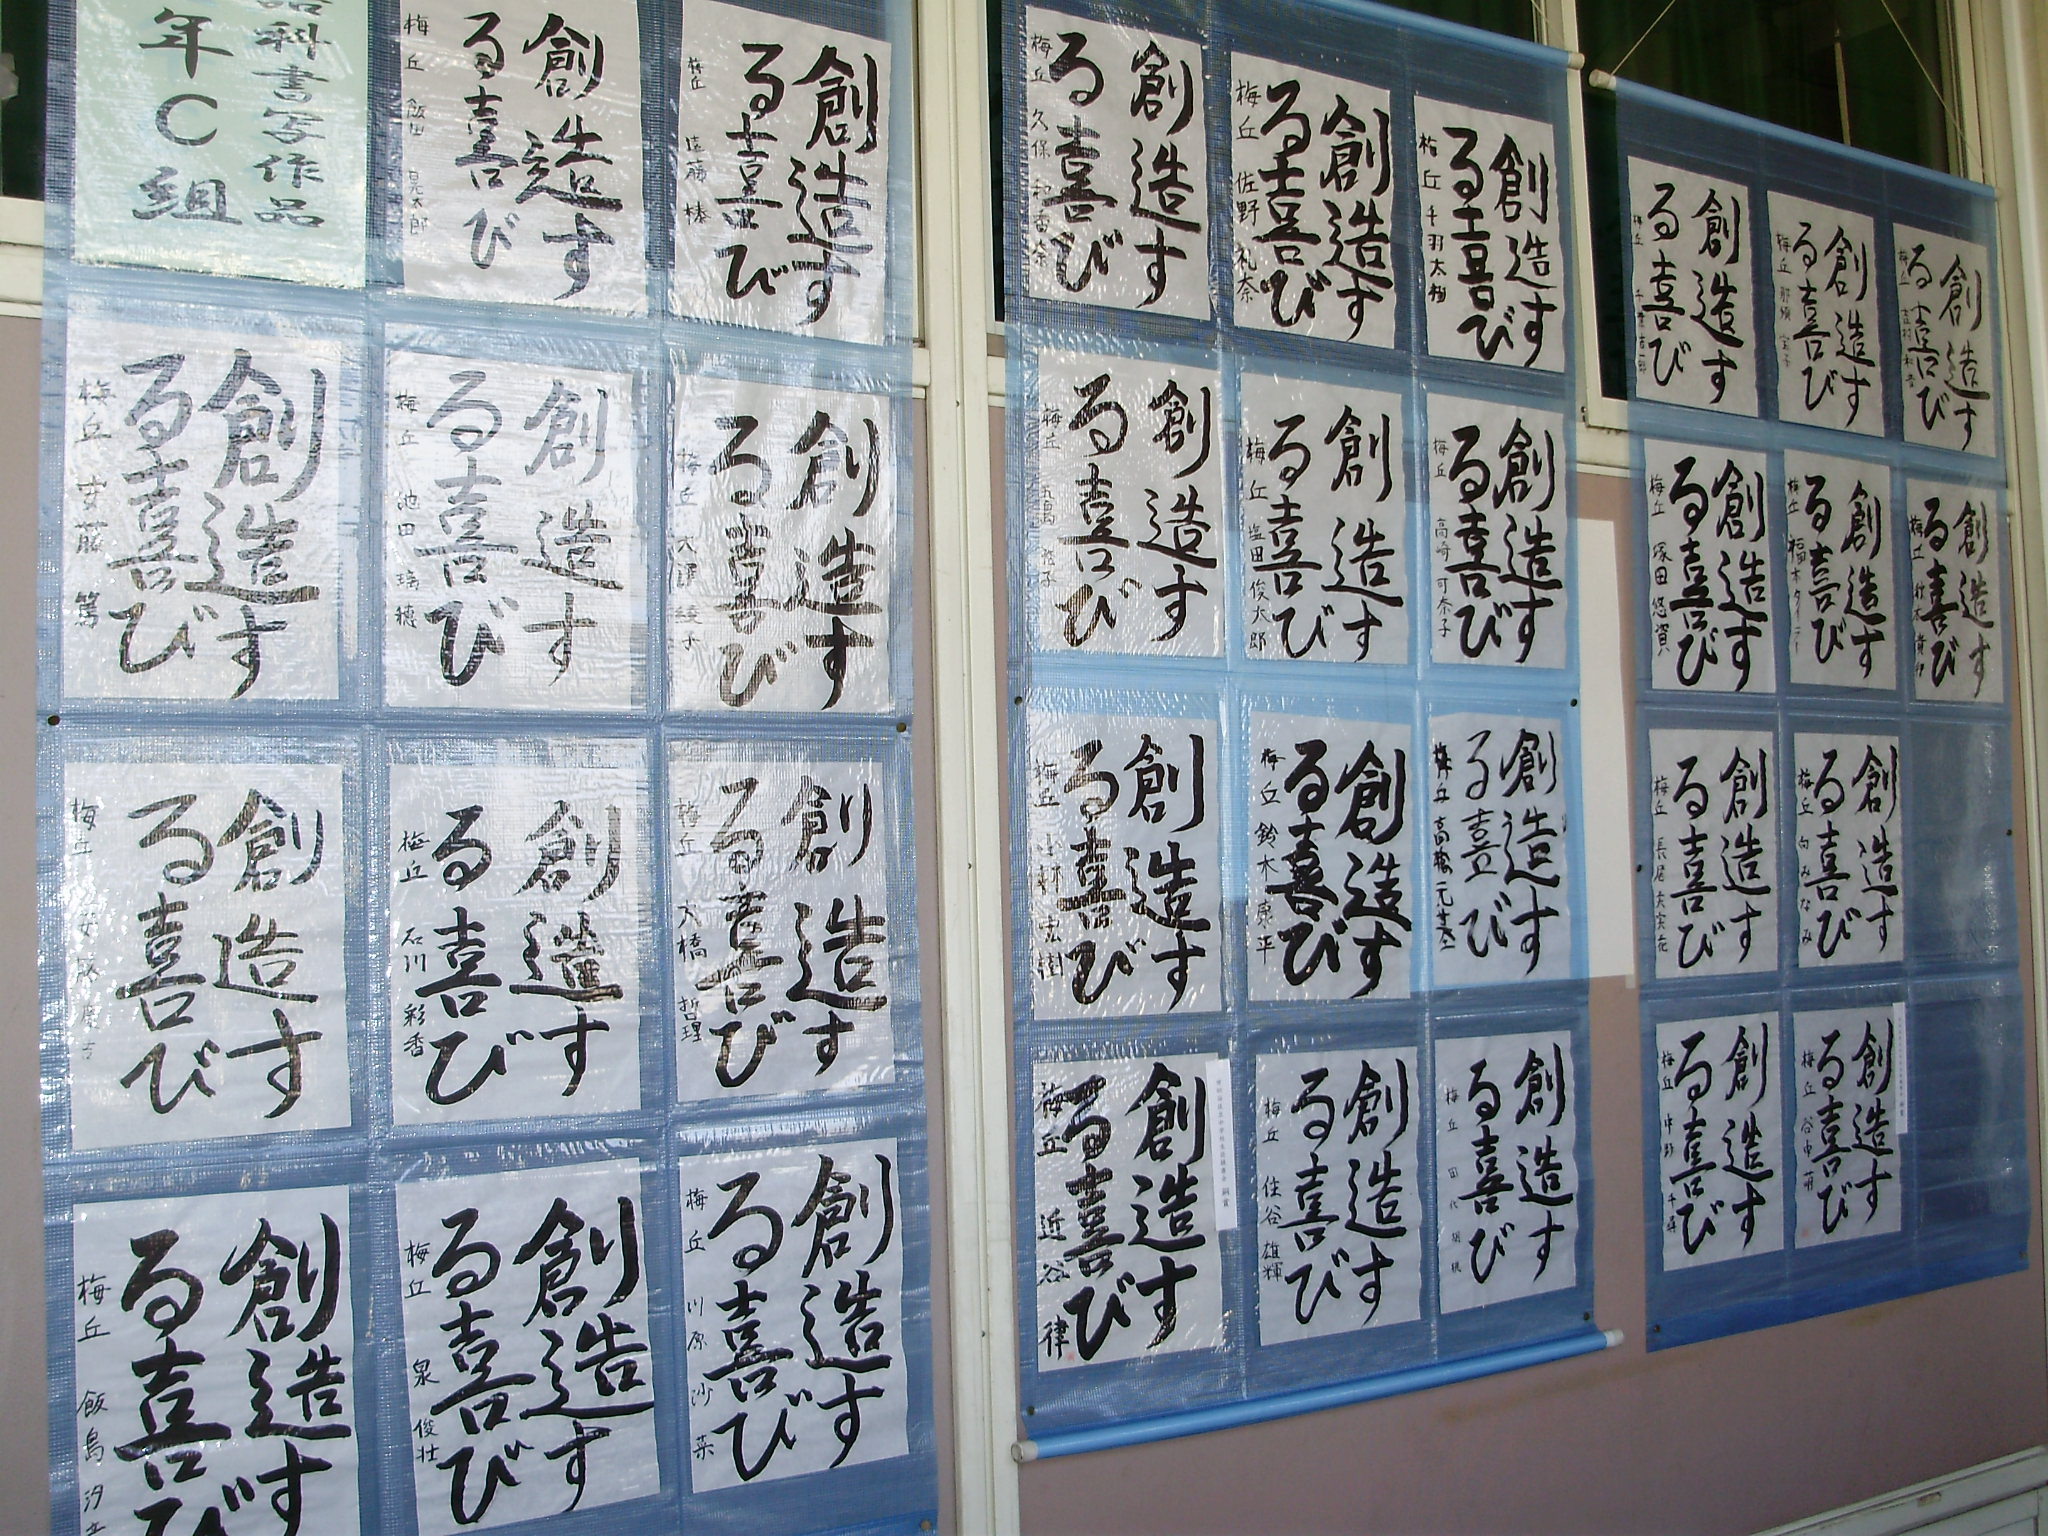 語科書写作品
年C組
創造す
る喜び
梅丘
創造す
る喜び
梅丘 遠藤 榛
創造す
る喜び
梅丘 安藤 篤
創造す
る喜び
梅丘 池田 瑞穂
創造す
る喜び
梅丘 大澤 綾子
創造す
る喜び
梅丘
創造す
る喜び
梅丘 石川 彩香
創造す
る喜び
梅丘 大橋 哲理
創造す
る喜び
梅丘 飯島 汐
創造す
る喜び
梅丘 泉 俊壮
創造す
る喜び
梅丘 川原 沙菜
創造す
る喜び
梅丘 久保 和香奈
創造す
る喜び
梅丘 佐野 礼奈
創造す
る喜び
梅丘 千羽太樹
創造す
る喜び
梅丘
創造す
る喜び
梅丘 塩田 俊太郎
創造す
る喜び
梅丘 高崎 可奈子
創造す
る喜び
梅丘 宏樹
創造す
る喜び
梅丘 鈴木 康平
創造す
る喜び
梅丘 高橋 元基
創造す
る喜び
梅丘 近谷 律
銅賞
創造す
る喜び
梅丘 住谷 雄輝
創造す
る喜び
梅丘 田代
創造す
る喜び
梅丘
創造す
る喜び
梅丘 那須
創造す
る喜び
梅丘
創造す
る喜び
梅丘 塚田 悠資
創造す
る喜び
梅丘 福本
創造す
る喜び
梅丘
創造す
る喜び
梅丘 長尾
創造す
る喜び
梅丘 向 みなみ
創造す
る喜び
梅丘 中野 千尋
創造す
る喜び
梅丘 谷中 萌